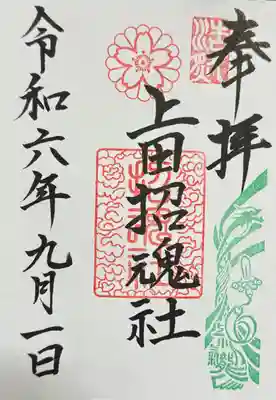 奉拝
上田招魂社
令和六年九月一日